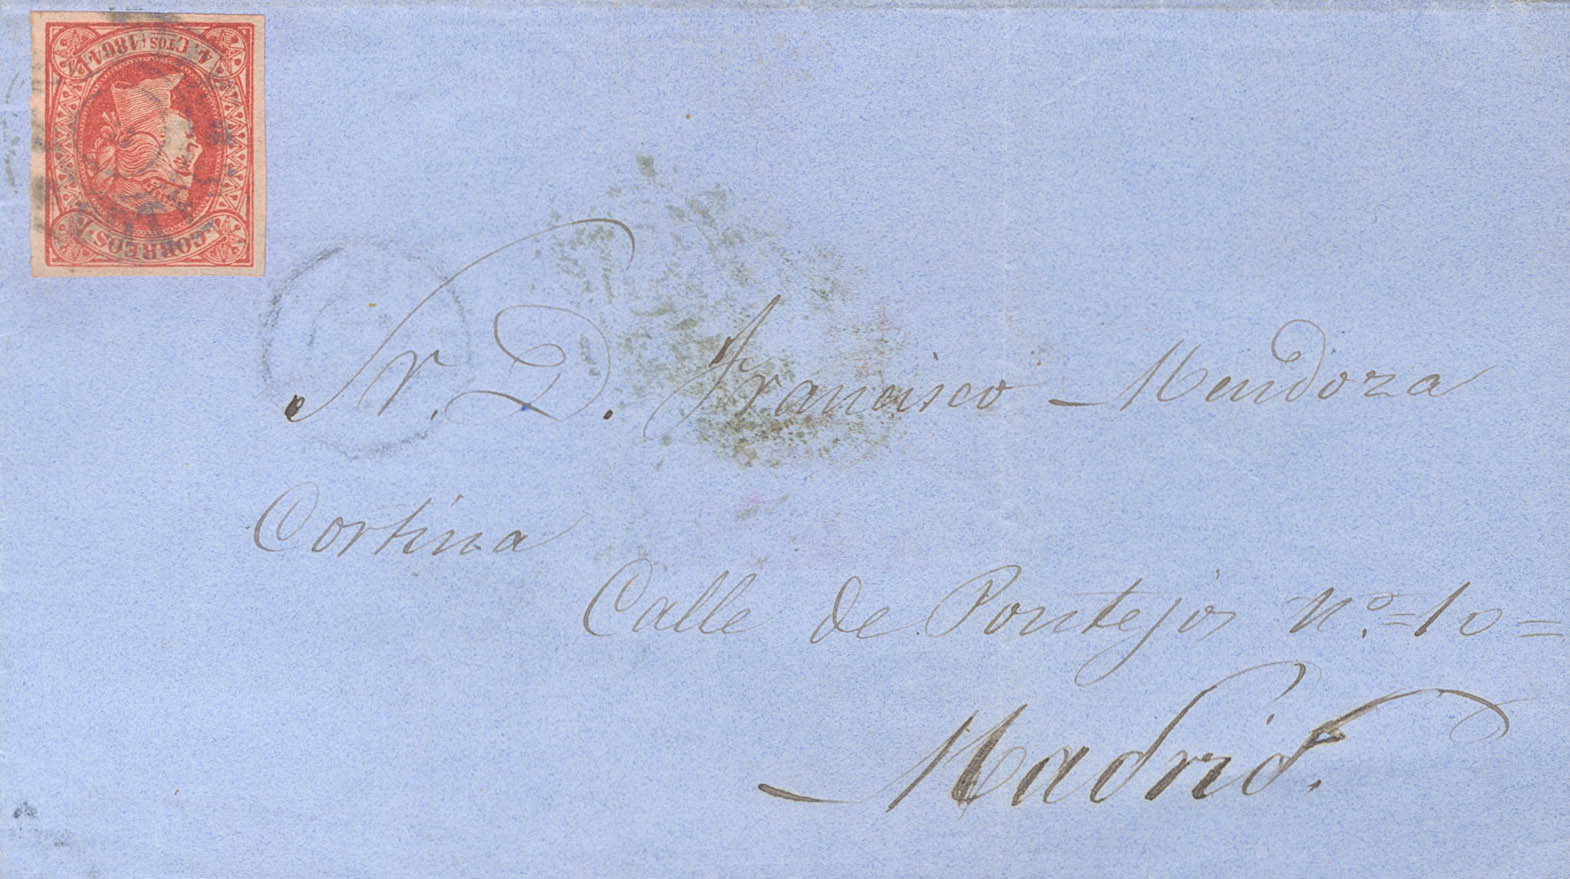 4 Ctos 1864
CORREOS
Sr. D. Francisco Mendoza
Cortina
Calle de Pontejos Nº=10=
Madrid.